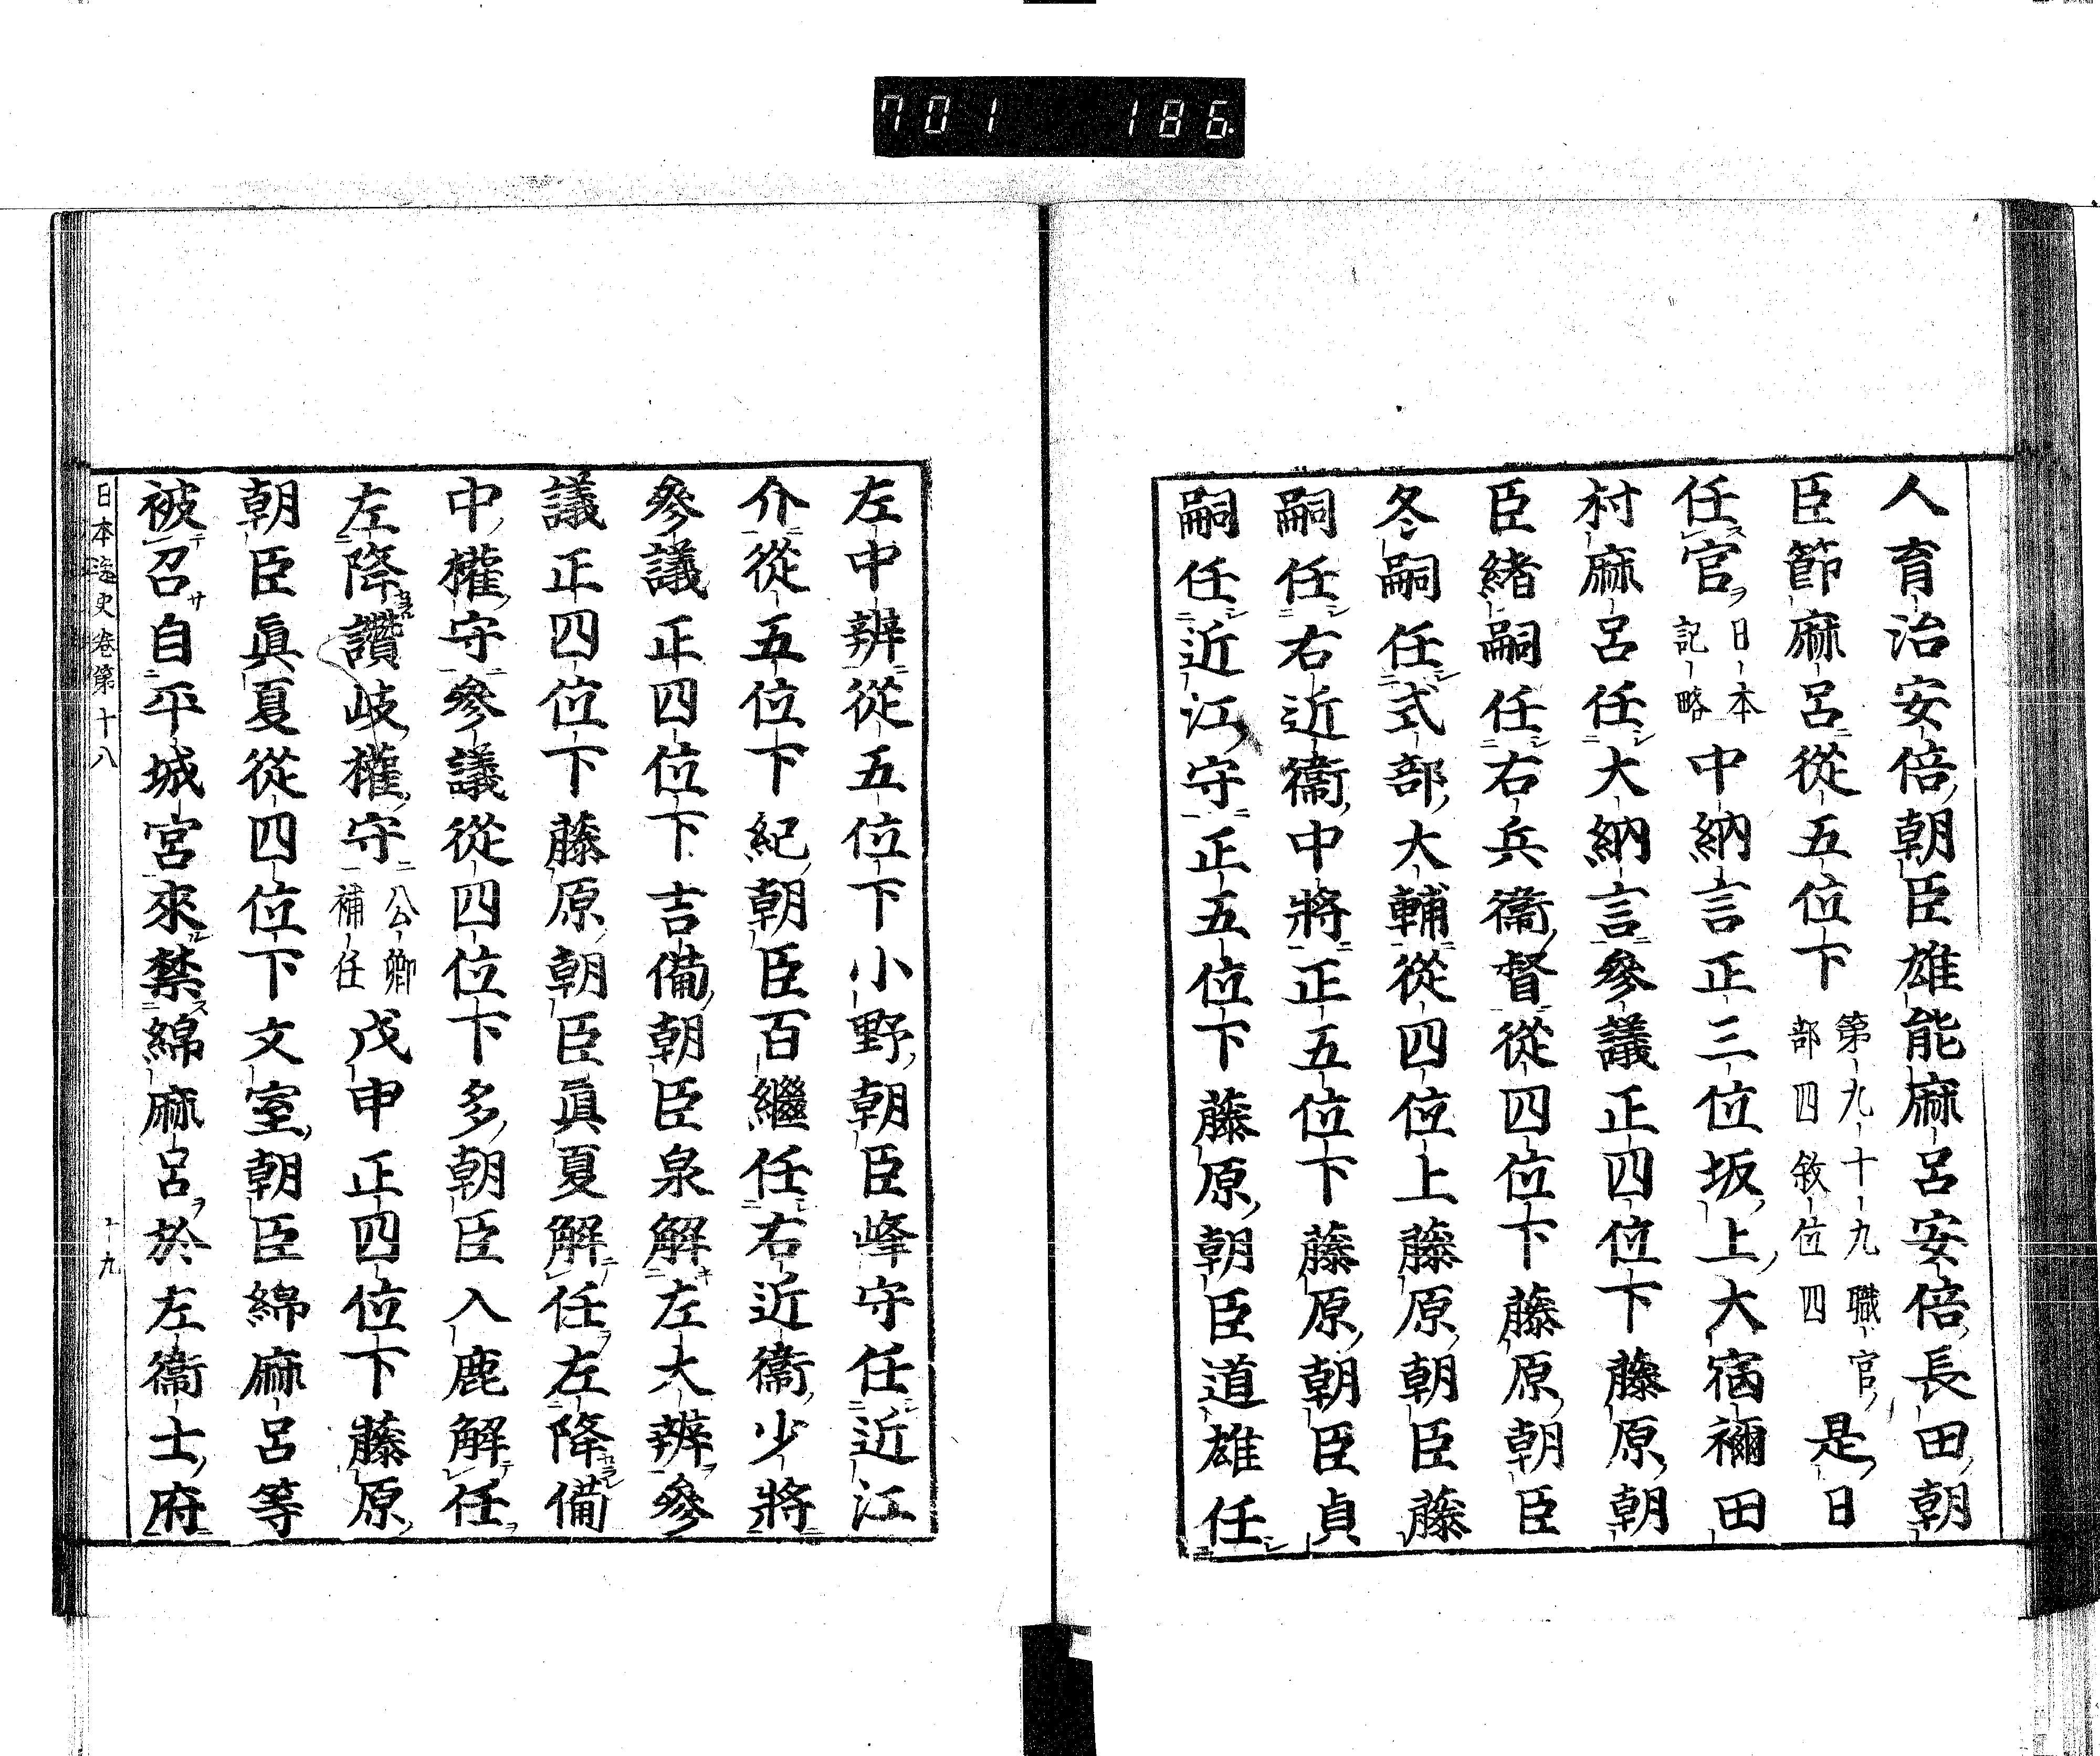 701 186
人育治安倍朝臣雄能麻呂安倍長田朝
臣節麻呂從五位下第九十九職官部四敘位四是日
任官日本記略中納言正三位坂上大宿禰田
村麻呂任大納言參議正四位下藤原朝
臣緒嗣任右兵衞督從四位下藤原朝臣
冬嗣任式部大輔從四位上藤原朝臣藤
嗣任右近衞中將正五位下藤原朝臣貞
嗣任近江守正五位下藤原朝臣道雄任
左中辨從五位下小野朝臣峰守任近江
介從五位下紀朝臣百繼任右近衞少將
參議正四位下吉備朝臣泉解左大辨參
議正四位下藤原朝臣眞夏解任左降備
中權守參議從四位下多朝臣入鹿解任
左降讚岐權守公卿補任戊申正四位下藤原
朝臣眞夏從四位下文室朝臣綿麻呂等
被召自平城宮來禁綿麻呂於左衞士府
日本逸史卷第十八 十九